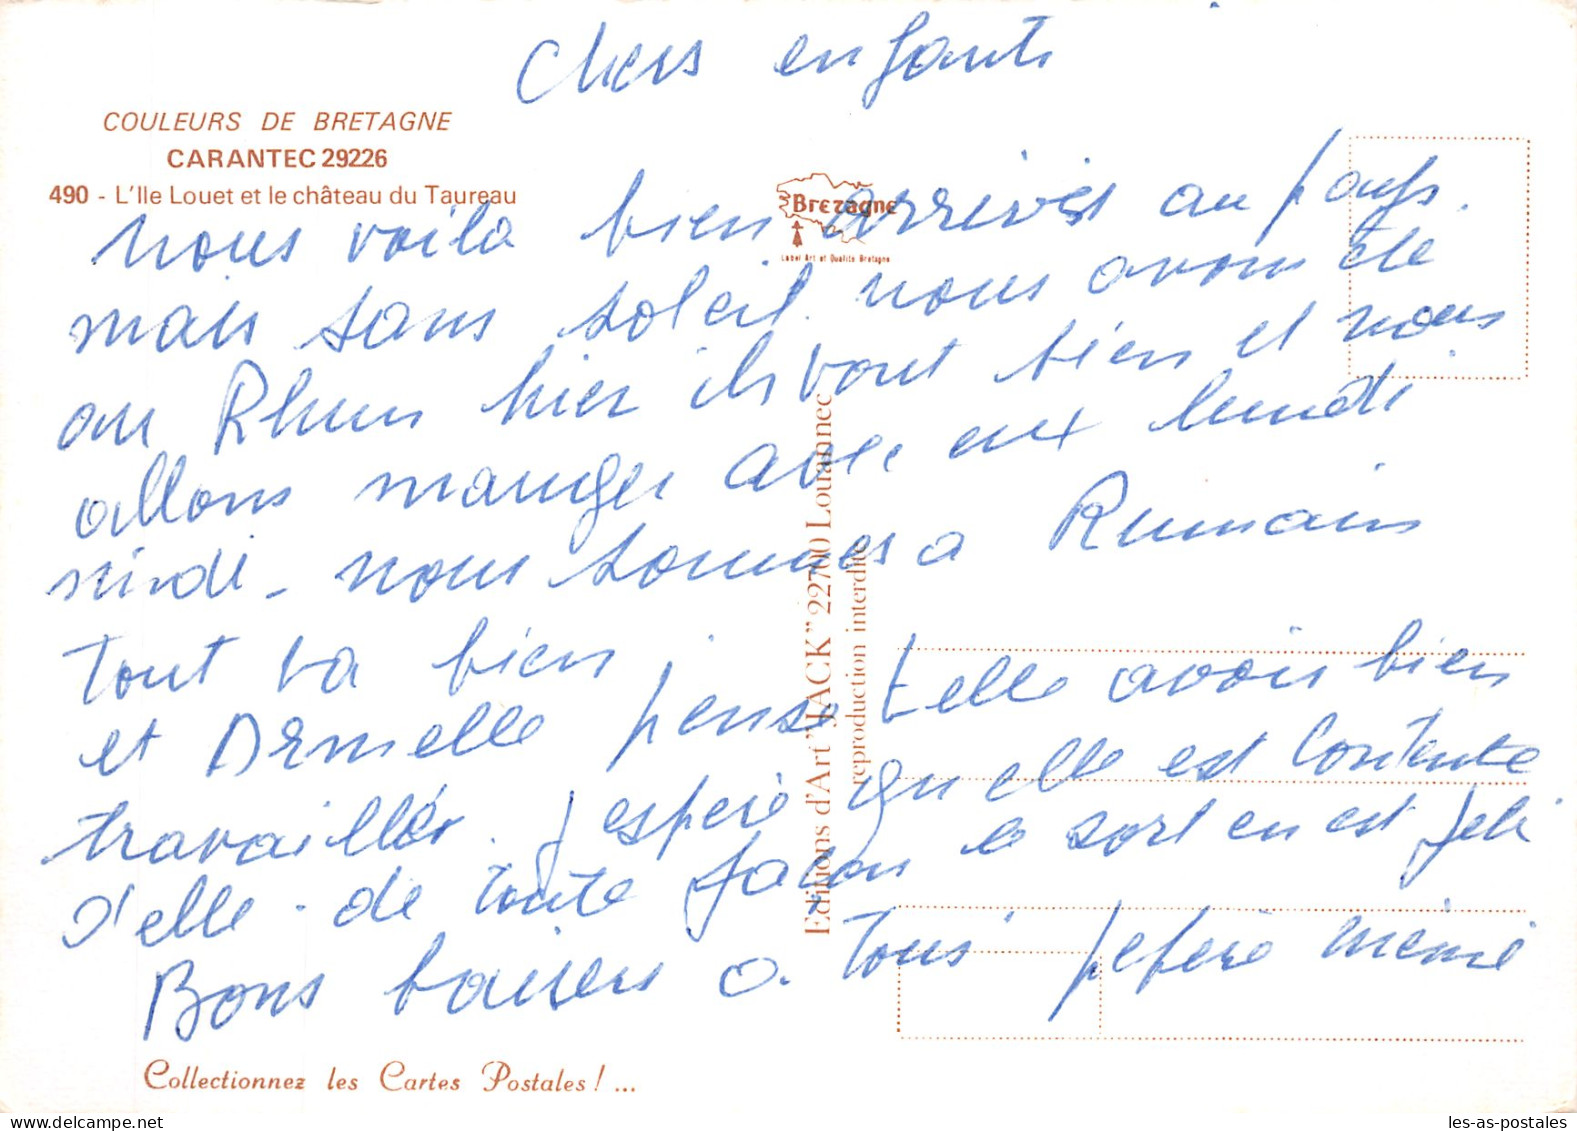 Chers enfants
COULEURS DE BRETAGNE
CARANTEC 29226
490 - L'Ile Louet et le château du Taureau
Bretagne
Label Art et Qualité Bretagne
nous voila bien arrivés au pays.
mais sans soleil. nous avons été
au Rhun hier ils vont bien et nous
allons manger avec eux lundi
midi - nous sommes a Rumain
Tout va bien
et Armelle pense t elle avoir bien
travaillér. j espère qu elle est contente
d'elle. de toute façon le sort en est jeté
Bons baisers a Tous pepere mémé
Editions d'Art "JACK" 22700 Louannec
reproduction interdite
Collectionnez les Cartes Postales ! ...
les-as-postales